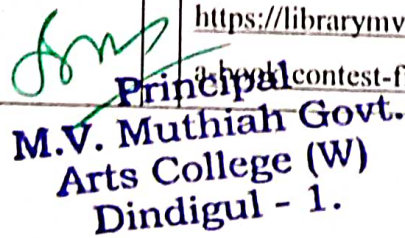 https://librarymv
a-book contest-f
Principal
M.V. Muthiah Govt.
Arts College (W)
Dindigul - 1.